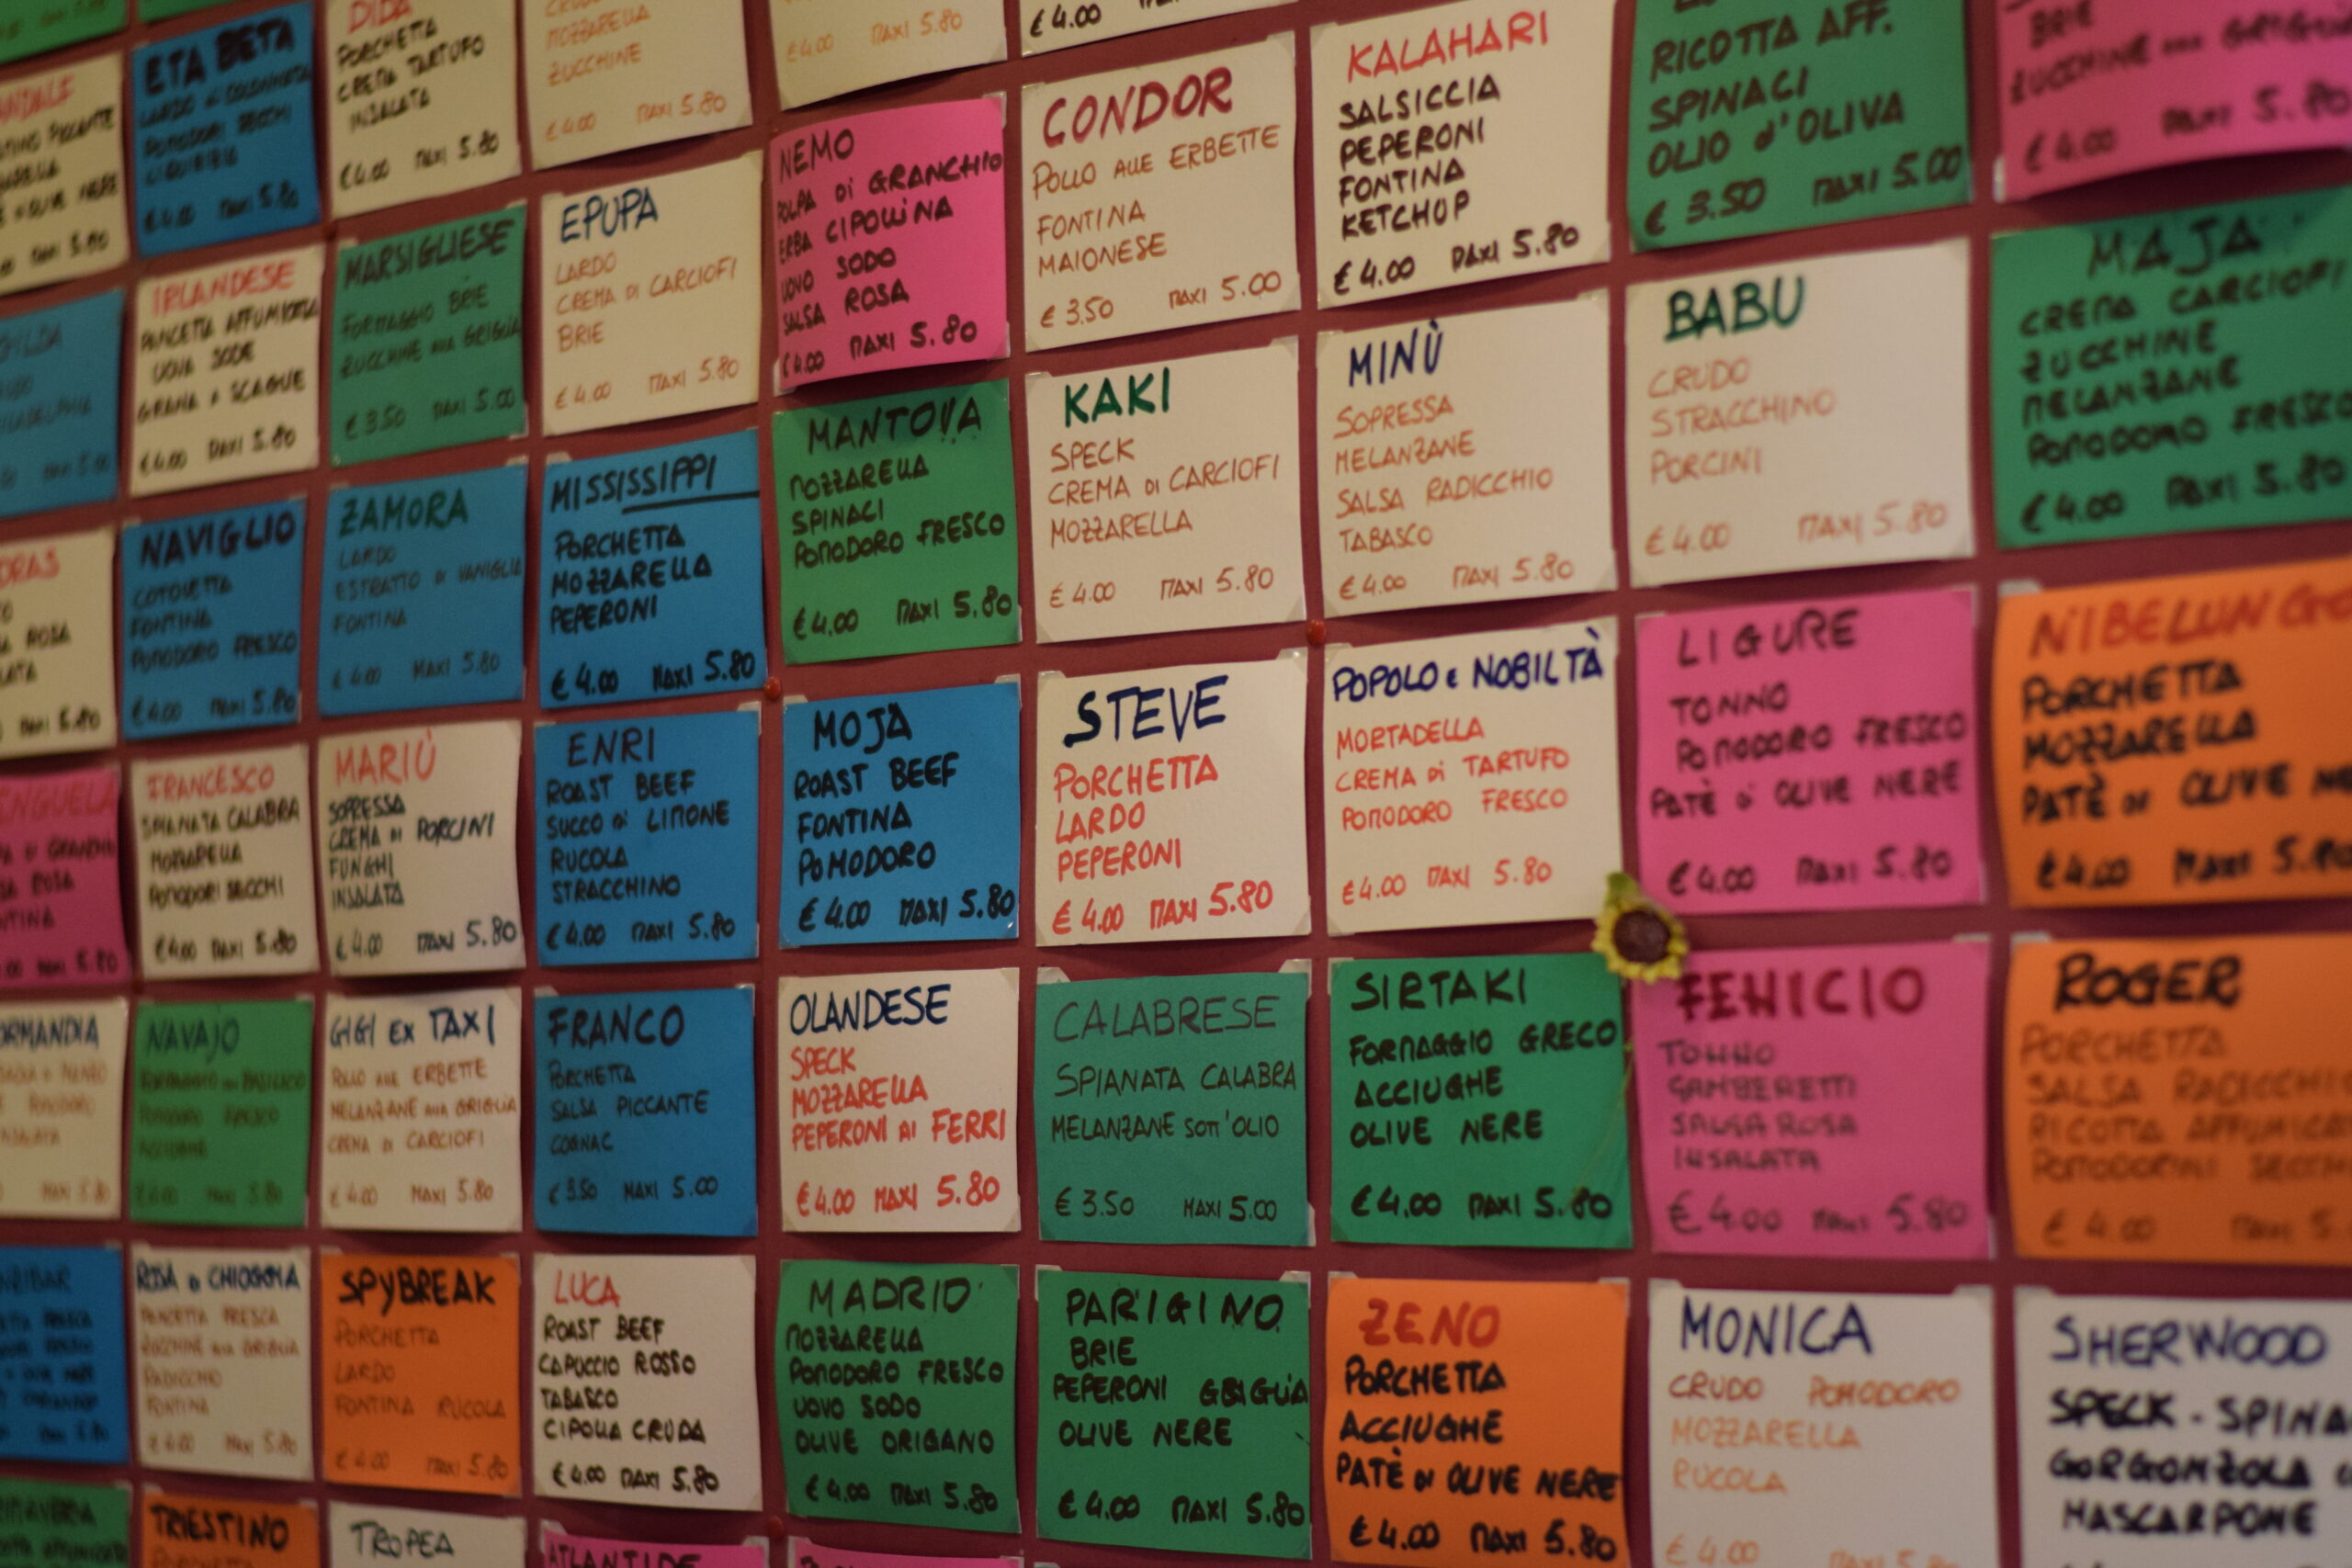 ETA BETA
POMODORI SECCHI
€4.00 MAXI 5.80
DIDA
PORCHETTA
CREMA TARTUFO
INSALATA
€4.00 MAXI 5.80
MOZZARELLA
ZUCCHINE
€4.00 MAXI 5.80
€4.00 MAXI 5.80
€4.00
NEMO
POLPA di GRANCHIO
ERBA CIPOLLINA
UOVO SODO
SALSA ROSA
€4.00 MAXI 5.80
CONDOR
POLLO ALLE ERBETTE
FONTINA
MAIONESE
€ 3.50 MAXI 5.00
KALAHARI
SALSICCIA
PEPERONI
FONTINA
KETCHUP
€ 4.00 MAXI 5.80
RICOTTA AFF.
SPINACI
OLIO d'OLIVA
€ 3.50 MAXI 5.00
BRIE
ZUCCHINE
€ 4.00 MAXI 5.80
IRLANDESE
PANCETTA AFFUMICATA
UOVA SODE
GRANA A SCAGLIE
€4.00 MAXI 5.80
MARSIGLIESE
FORMAGGIO BRIE
ZUCCHINE ALLA GRIGLIA
€ 3.50 MAXI 5.00
EPUPA
LARDO
CREMA DI CARCIOFI
BRIE
€ 4.00 MAXI 5.80
MANTOVA
MOZZARELLA
SPINACI
POMODORO FRESCO
€4.00 MAXI 5.80
KAKI
SPECK
CREMA DI CARCIOFI
MOZZARELLA
€ 4.00 MAXI 5.80
MINÙ
SOPRESSA
MELANZANE
SALSA RADICCHIO
TABASCO
€ 4.00 MAXI 5.80
BABU
CRUDO
STRACCHINO
PORCINI
€ 4.00 MAXI 5.80
MAJA
CREMA CARCIOFI
ZUCCHINE
MELANZANE
POMODORO FRESCO
€ 4.00 MAXI 5.80
NAVIGLIO
COTOLETTA
FONTINA
POMODORO FRESCO
€4.00 MAXI 5.80
ZAMORA
LARDO
ESTRATTO DI VANIGLIA
FONTINA
€ 4.00 MAXI 5.80
MISSISSIPPI
PORCHETTA
MOZZARELLA
PEPERONI
€ 4.00 MAXI 5.80
MOJA
ROAST BEEF
FONTINA
POMODORO
€ 4.00 MAXI 5.80
STEVE
PORCHETTA
LARDO
PEPERONI
€ 4.00 MAXI 5.80
POPOLO e NOBILTÀ
MORTADELLA
CREMA di TARTUFO
POMODORO FRESCO
€4.00 MAXI 5.80
LIGURE
TONNO
POMODORO FRESCO
PATÈ di OLIVE NERE
€ 4.00 MAXI 5.80
PORCHETTA
MOZZARELLA
PATÈ DI OLIVE
€4.00 MAXI 5.80
FRANCESCO
SPIANATA CALABRA
MOZZARELLA
POMODORI SECCHI
€4.00 MAXI 5.80
MARIÙ
SOPRESSA
CREMA DI PORCINI
FUNGHI
INSALATA
€ 4.00 MAXI 5.80
ENRI
ROAST BEEF
SUCCO di LIMONE
RUCOLA
STRACCHINO
€4.00 MAXI 5.80
OLANDESE
SPECK
MOZZARELLA
PEPERONI AI FERRI
€4.00 MAXI 5.80
CALABRESE
SPIANATA CALABRA
MELANZANE SOTT'OLIO
€ 3.50 MAXI 5.00
SIRTAKI
FORMAGGIO GRECO
ACCIUGHE
OLIVE NERE
€4.00 MAXI 5.80
FENICIO
TONNO
GAMBERETTI
SALSA ROSA
INSALATA
€ 4.00 MAXI 5.80
ROGER
PORCHETTA
SALSA RADICCHIO
RICOTTA
POMODORINI SECCHI
€ 4.00 MAXI
NAVAJO
POMODORO FRESCO
€4.00 MAXI 5.80
GIGI EX TAXI
POLLO ALLE ERBETTE
MELANZANE ALLA GRIGLIA
CREMA DI CARCIOFI
€ 4.00 MAXI 5.80
FRANCO
PORCHETTA
SALSA PICCANTE
COGNAC
€ 3.50 MAXI 5.00
MADRID
MOZZARELLA
POMODORO FRESCO
UOVO SODO
OLIVE ORIGANO
€ 4.00 MAXI 5.80
PARIGINO
BRIE
PEPERONI GRIGLIA
OLIVE NERE
€ 4.00 MAXI 5.80
ZENO
PORCHETTA
ACCIUGHE
PATÈ DI OLIVE NERE
€ 4.00 MAXI 5.80
MONICA
CRUDO POMODORO
MOZZARELLA
RUCOLA
€ 4.00 MAXI 5.80
SHERWOOD
SPECK
GORGONZOLA
MASCARPONE
PANCETTA FRESCA
ZUCCHINE ALLA GRIGLIA
RADICCHIO
FONTINA
€4.00 MAXI 5.80
SPYBREAK
PORCHETTA
LARDO
FONTINA RUCOLA
€ 4.00 MAXI 5.80
LUCA
ROAST BEEF
CAPUCCIO ROSSO
TABASCO
CIPOLLA CRUDA
€ 4.00 MAXI 5.80
TRIESTINO
PORCHETTA
TROPEA
ATLANTIDE